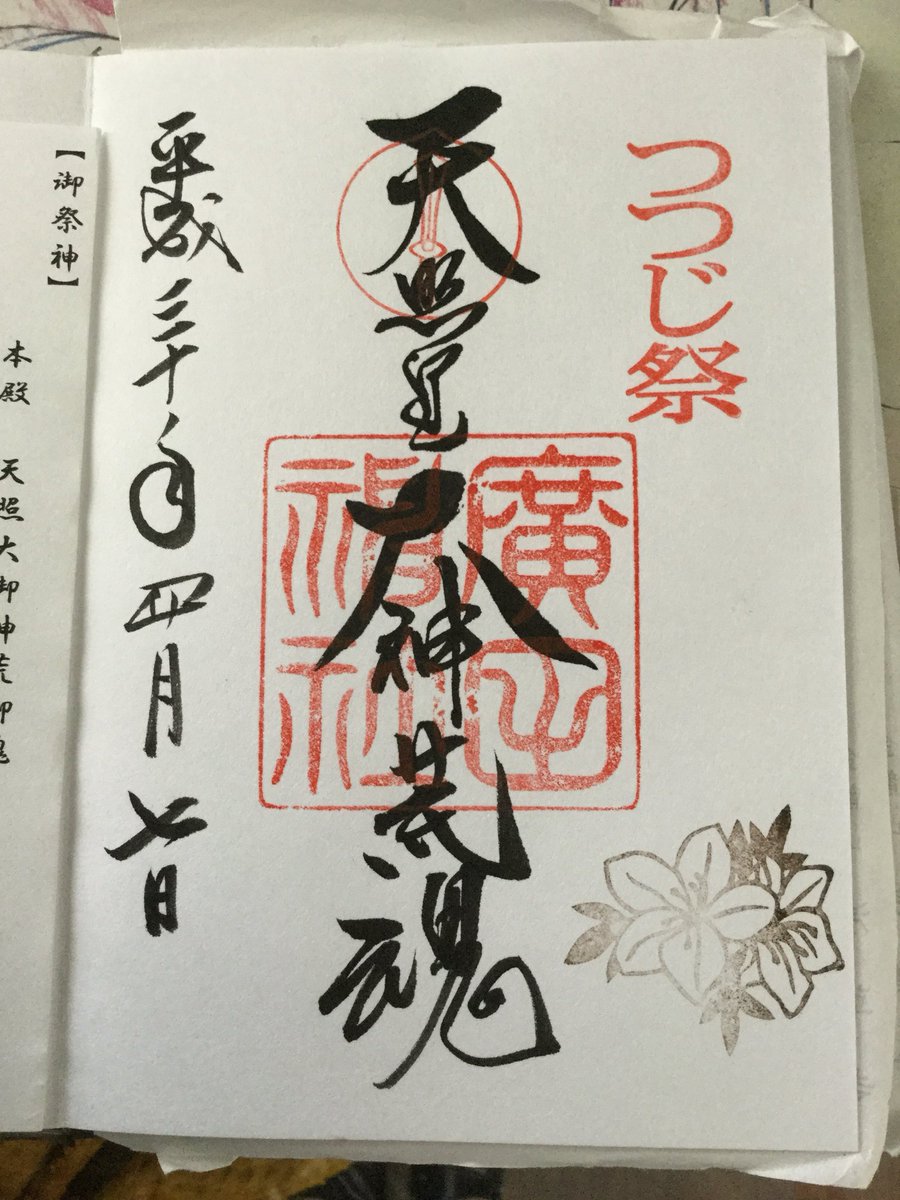 つつじ祭
天照皇大神荒魂
廣田神社
平成三十年四月七日
【御祭神】
本殿 天照大御神荒御魂